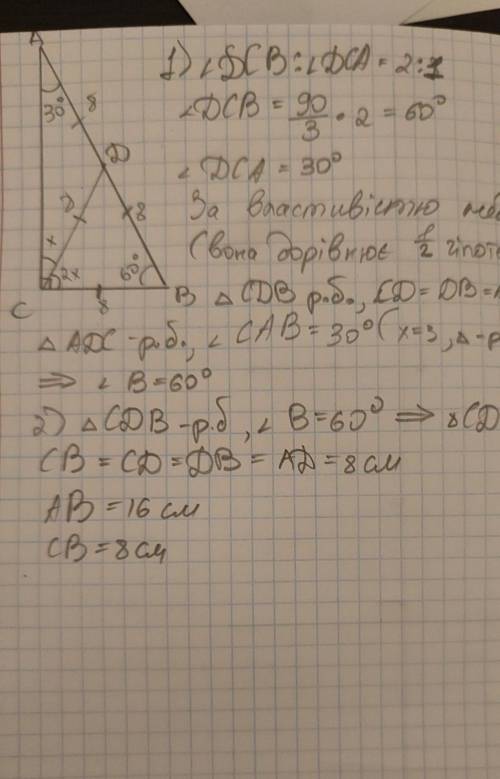 A
30°
8
D
8
x
2x
60°
C
8
B
1) ∠DCB:∠DCA = 2:1
∠DCB = 90/3 · 2 = 60°
∠DCA = 30°
За властивістю
(вона дорівнює 1/2
△CDB р.б., CD = DB =
△ADC - р.б., ∠CAB = 30° (x=3, △-р
⇒ ∠B = 60°
2) △CDB - р.б, ∠B = 60° ⇒ CD
CB = CD = DB = AD = 8 см
AB = 16 см
CB = 8 см